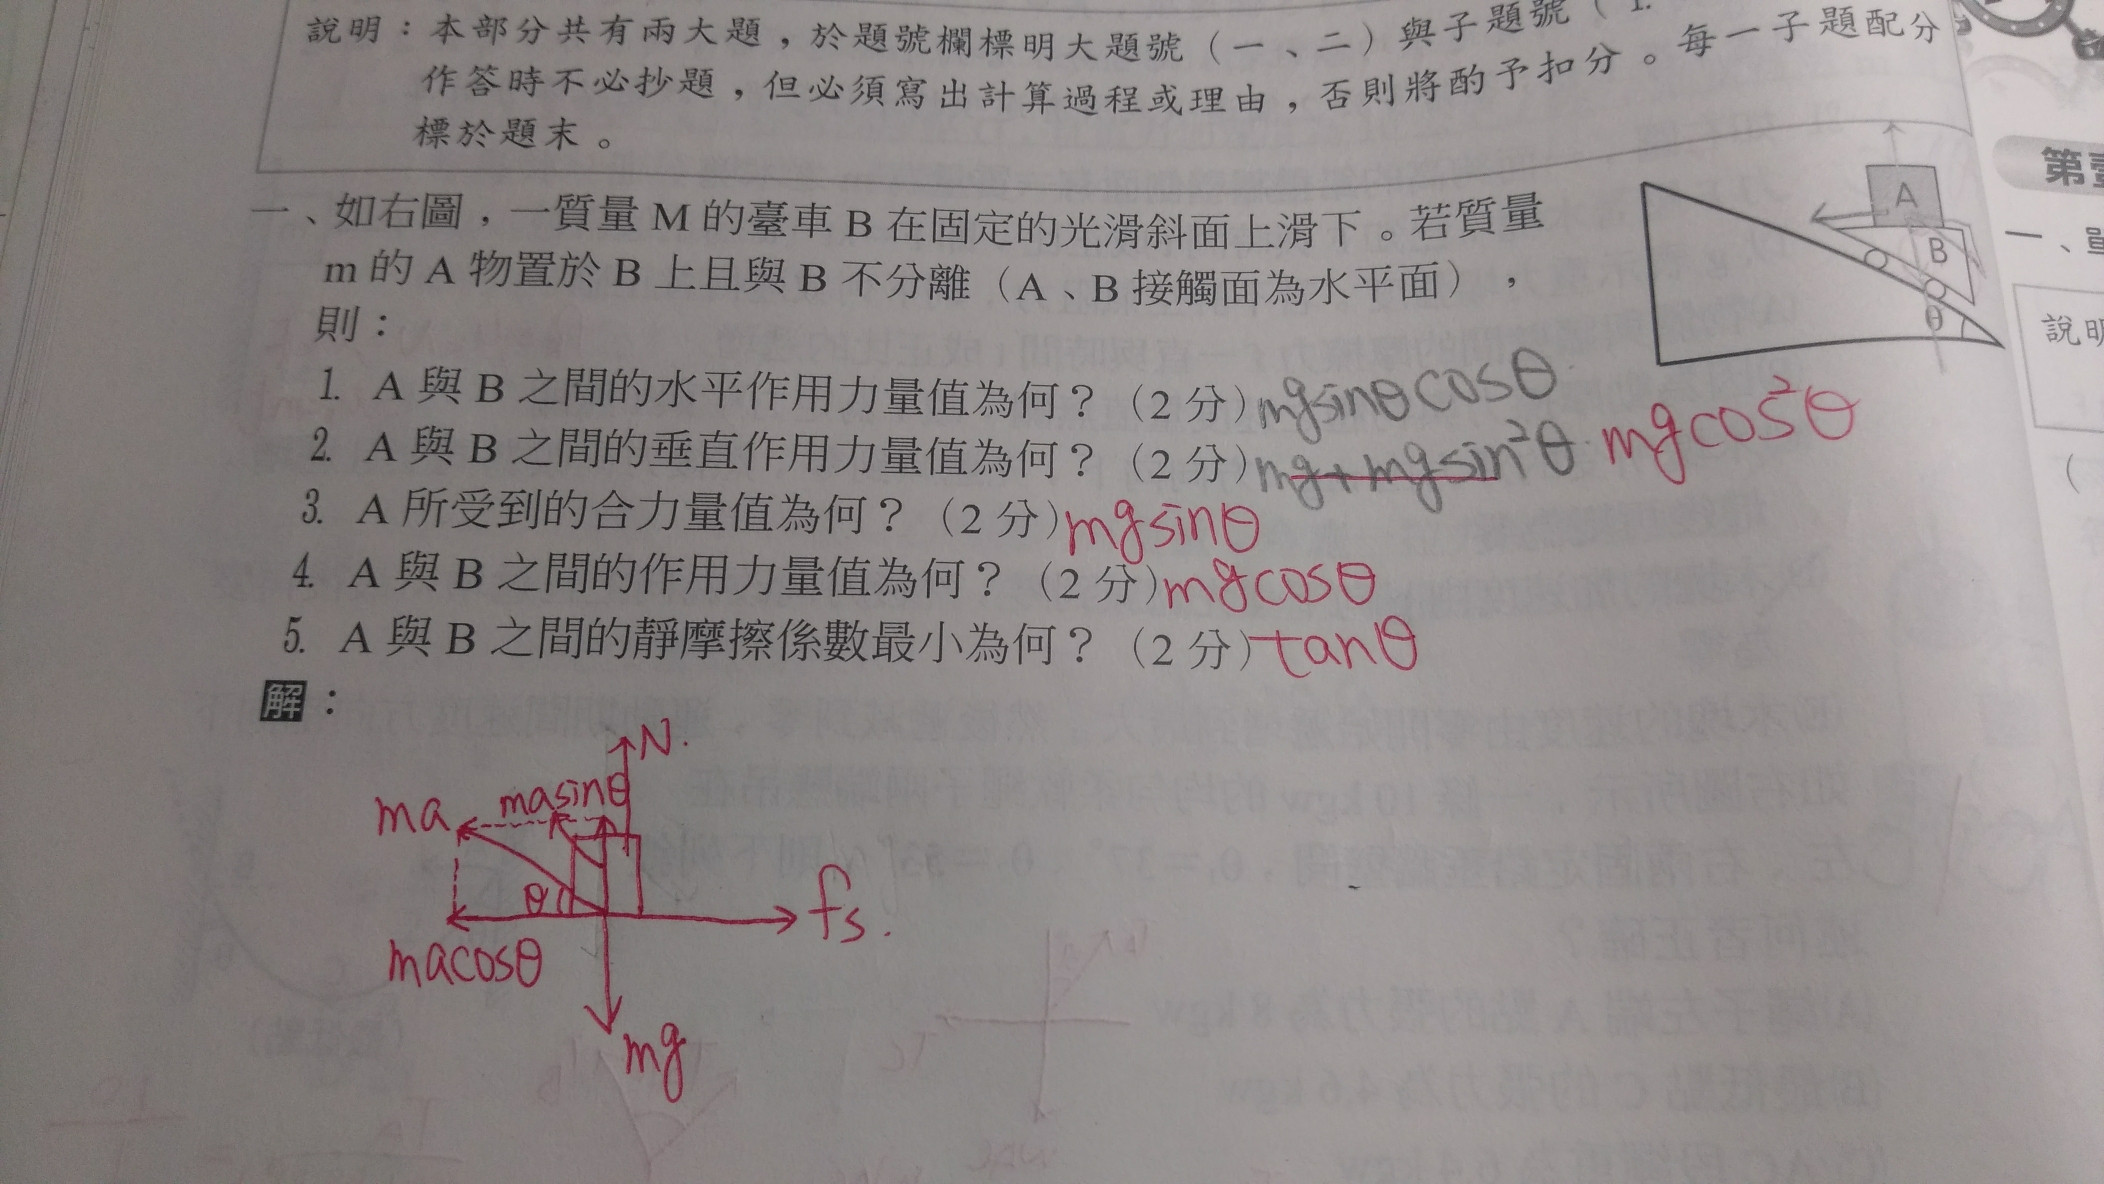 說明：本部分共有兩大題，於題號欄標明大題號（一、二）與子題號（1.
作答時不必抄題，但必須寫出計算過程或理由，否則將酌予扣分。每一子題配分
標於題末。
一、如右圖，一質量 M 的臺車 B 在固定的光滑斜面上滑下。若質量
m 的 A 物置於 B 上且與 B 不分離（A、B 接觸面為水平面），
則：
1. A 與 B 之間的水平作用力量值為何？（2 分）mgsinθcosθ
2. A 與 B 之間的垂直作用力量值為何？（2 分）mg+mgsin²θ mgcos²θ
3. A 所受到的合力量值為何？（2 分）mgsinθ
4. A 與 B 之間的作用力量值為何？（2 分）mgcosθ
5. A 與 B 之間的靜摩擦係數最小為何？（2 分）tanθ
解：
A
B
θ
N.
masinθ
ma
θ
fs.
macosθ
mg
第
一、
說明
（